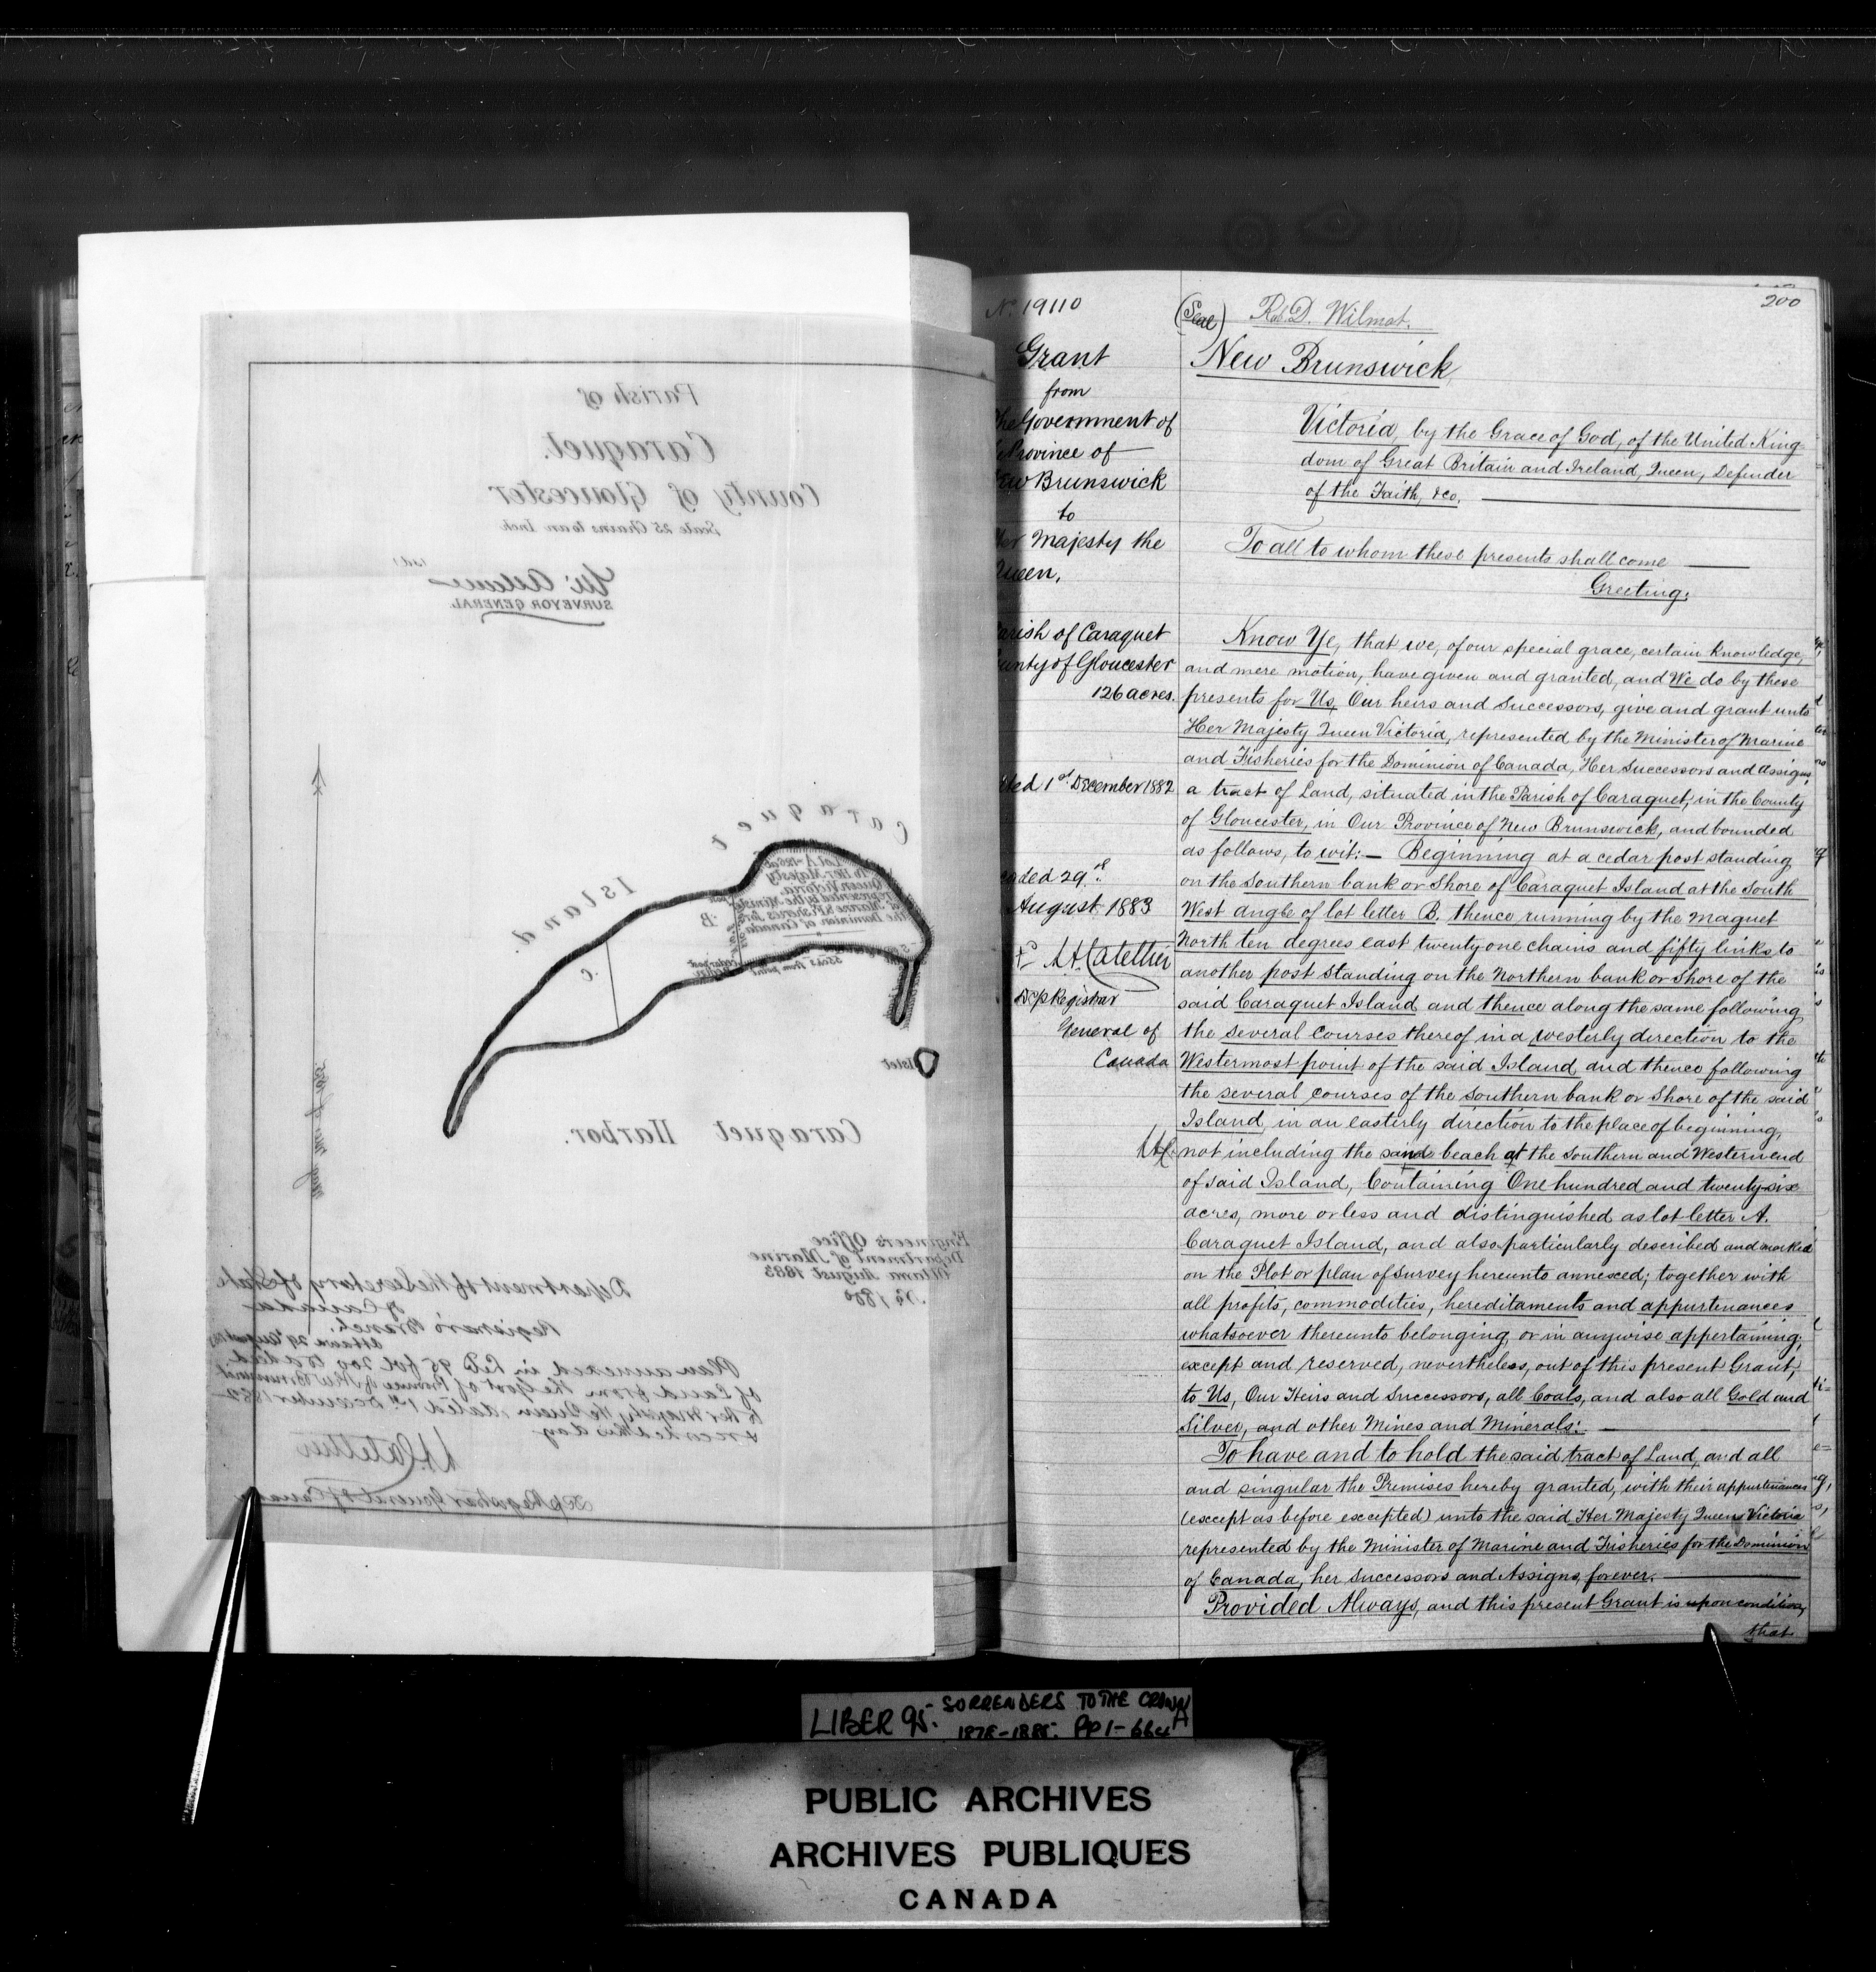 Parish of
Caraquet.
County of Gloucester
Scale 25 Chains to an Inch
SURVEYOR GENERAL
Caraquet
Island.
Lot A 126 ac
To Her Majesty
Queen Victoria
represented by the Minister
of Marine & Fisheries for
the Dominion of Canada
B.
C.
Islet
Caraquet Harbor.
Engineer's Office
Department of Marine
Ottawa August 1883
No 1800
Department of the Secretary of State
of Canada
Registrar's Branch.
Ottawa 29th August 1883
Plan annexed in Lib 95 fol 200 to a deed
of Land from the Govt of Province of New Brunswick
to Her Majesty the Queen, dated 1st December 1882
& recorded this day
LACatellier
Dep Registrar General of Canada
No. 19110
Grant
from
the Government of
Province of
New Brunswick
to
Her Majesty the
Queen.
Parish of Caraquet
County of Gloucester
126 acres.
dated 1st December 1882
29th
August 1883
LACatellier
Dep Registrar
General of
Canada
200
(Seal) R. D. Wilmot.
New Brunswick,
Victoria, by the Grace of God, of the United King-
dom of Great Britain and Ireland, Queen, Defender
of the Faith, &c.
To all to whom these presents shall come
Greeting:
Know Ye, that we, of our special grace, certain knowledge,
and mere motion, have given and granted, and We do by these
presents for Us, Our heirs and Successors, give and grant unto
Her Majesty Queen Victoria, represented by the Minister of Marine
and Fisheries for the Dominion of Canada, Her Successors and Assigns,
a tract of Land, situated in the Parish of Caraquet, in the County
of Gloucester, in Our Province of New Brunswick, and bounded
as follows, to wit:— Beginning at a cedar post standing
on the Southern bank or Shore of Caraquet Island at the South
West angle of lot letter B. thence running by the magnet
North ten degrees east twenty one chains and fifty links to
another post standing on the Northern bank or Shore of the
said Caraquet Island and thence along the same following
the several courses thereof in a westerly direction to the
Westermost point of the said Island and thence following
the several courses of the Southern bank or Shore of the said
Island, in an easterly direction to the place of beginning,
not including the sand beach at the Southern and Western end
of said Island, Containing One hundred and twenty-six
acres, more or less and distinguished as lot letter A.
Caraquet Island, and also particularly described and marked
on the Plot or plan of survey hereunto annexed; together with
all profits, commodities, hereditaments and appurtenances
whatsoever thereunto belonging, or in anywise appertaining;
except and reserved, nevertheless, out of this present Grant,
to Us, Our Heirs and Successors, all Coals, and also all Gold and
Silver, and other Mines and Minerals:
To have and to hold the said tract of Land, and all
and singular the Premises hereby granted, with their appurtenances
(except as before excepted) unto the said Her Majesty Queen Victoria
represented by the Minister of Marine and Fisheries for the Dominion
of Canada, her Successors and Assigns, forever.
Provided Always, and this present Grant is upon condition,
that
LIBER 95. SURRENDERS TO THE CROWN
1878-1885. PP 1-664A
PUBLIC ARCHIVES
ARCHIVES PUBLIQUES
CANADA